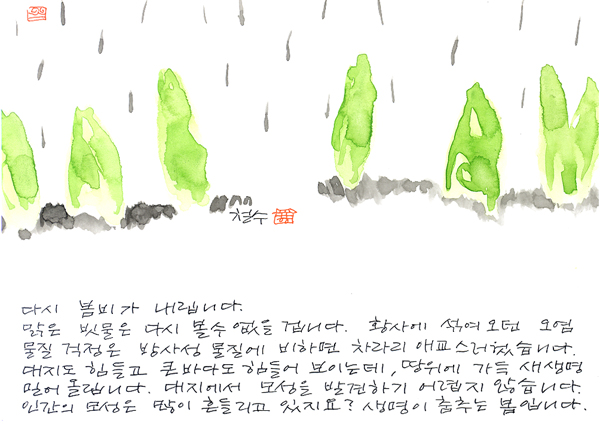 철수
다시 봄비가 내립니다.
맑은 빗물은 다시 볼수 없을 겁니다. 황사에 섞여오던 오염
물질 걱정은 방사성 물질에 비하면 차라리 애교스러웠습니다.
대지도 힘들고 큰바다도 힘들어 보이는데, 땅위에 가득 새생명
밀어 올립니다. 대지에서 모성을 발견하기 어렵지 않습니다.
인간의 모성은 많이 흔들리고 있지요? 생명이 춤추는 봄입니다.